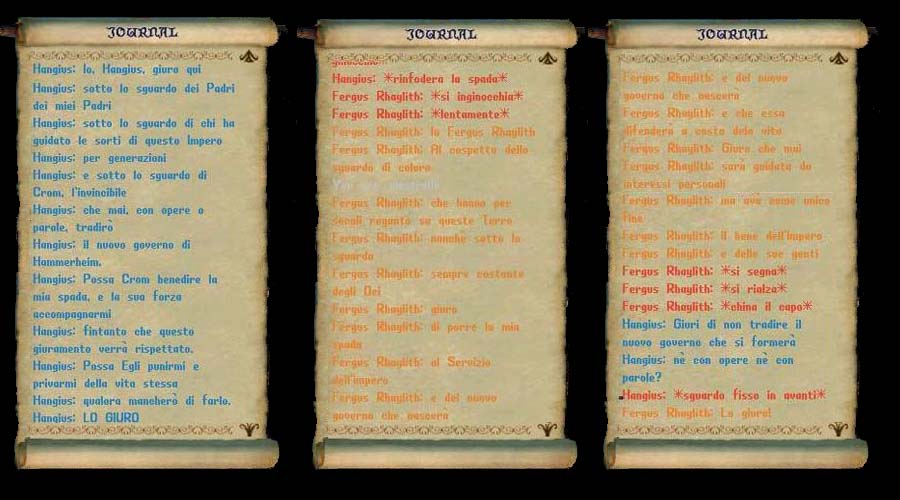 JOURNAL
Hangius: Io, Hangius, giuro qui
Hangius: sotto lo sguardo dei Padri
dei miei Padri
Hangius: sotto lo sguardo di chi ha
guidato le sorti di questo Impero
Hangius: per generazioni
Hangius: e sotto lo sguardo di
Crom, l'invincibile
Hangius: che mai, con opere o
parole, tradirò
Hangius: il nuovo governo di
Hammerheim.
Hangius: Possa Crom benedire la
mia spada, e la sua forza
accompagnarmi
Hangius: fintanto che questo
giuramento verrà rispettato.
Hangius: Possa Egli punirmi e
privarmi della vita stessa
Hangius: qualora mancherò di farlo.
Hangius: LO GIURO
JOURNAL
Hangius: *rinfodera la spada*
Fergus Rhaylith: *si inginocchia*
Fergus Rhaylith: *lentamente*
Fergus Rhaylith: Io Fergus Rhaylith
Fergus Rhaylith: Al cospetto dello
sguardo di coloro
Fergus Rhaylith: che hanno per
secoli regnato su queste Terre
Fergus Rhaylith: nonchè sotto lo
sguardo
Fergus Rhaylith: sempre costante
degli Dei
Fergus Rhaylith: giuro
Fergus Rhaylith: di porre la mia
spada
Fergus Rhaylith: al Servizio
dell'impero
Fergus Rhaylith: e del nuovo
governo che nascerà
JOURNAL
Fergus Rhaylith: e del nuovo
governo che nascerà
Fergus Rhaylith: e che essa
difenderà a costo della vita
Fergus Rhaylith: Giuro che mai
Fergus Rhaylith: sarà guidata da
interessi personali
Fergus Rhaylith: ma avà come unico
fine
Fergus Rhaylith: il bene dell'impero
Fergus Rhaylith: e delle sue genti
Fergus Rhaylith: *si segna*
Fergus Rhaylith: *si rialza*
Fergus Rhaylith: *china il capo*
Hangius: Giuri di non tradire il
nuovo governo che si formerà
Hangius: nè con opere nè con
parole?
Hangius: *sguardo fisso in avanti*
Fergus Rhaylith: Lo giuro!